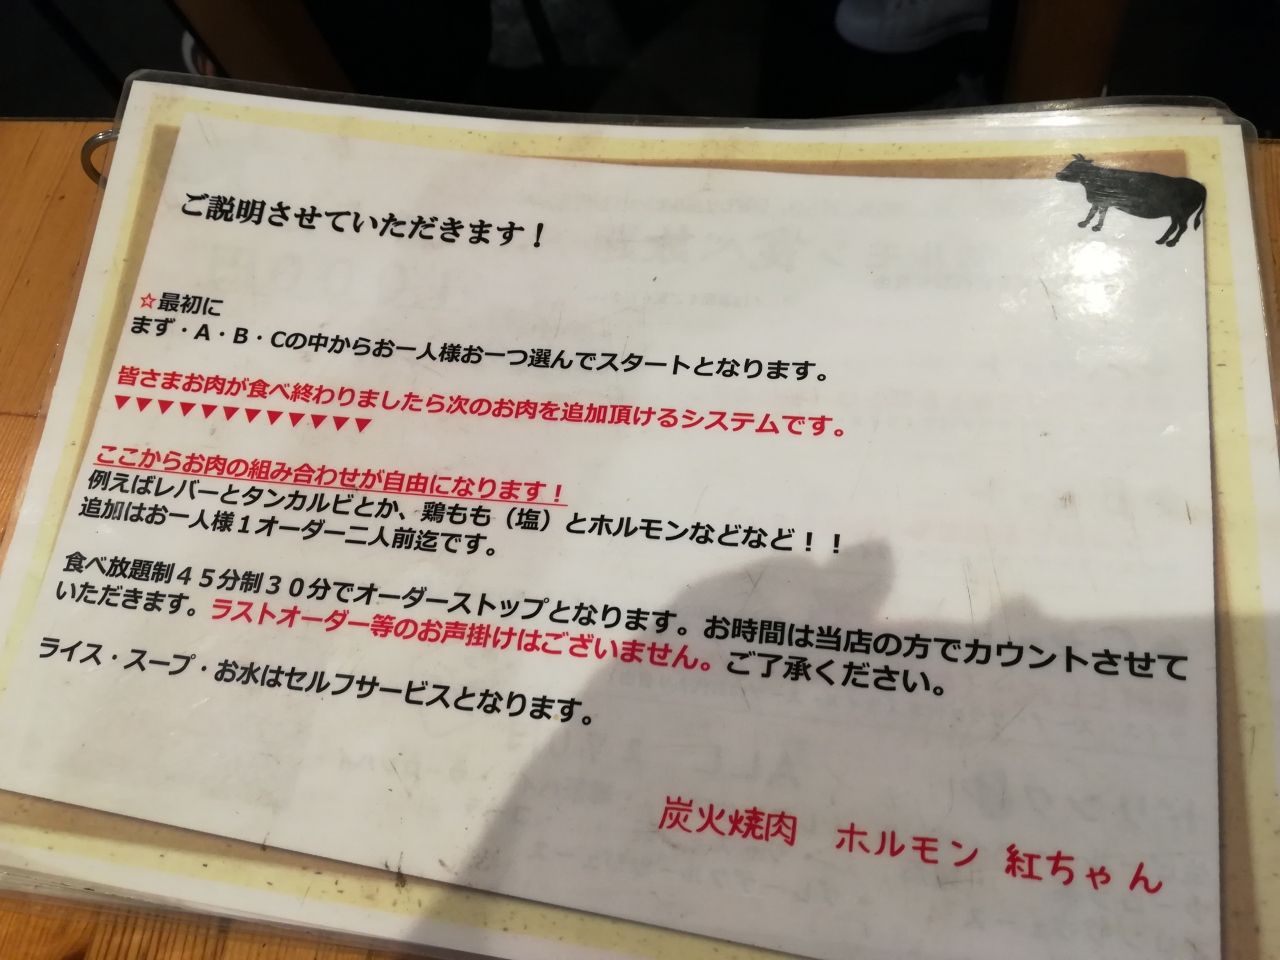 ご説明させていただきます！
☆最初に
まず・A・B・Cの中からお一人様お一つ選んでスタートとなります。
皆さまお肉が食べ終わりましたら次のお肉を追加頂けるシステムです。
▼▼▼▼▼▼▼▼▼▼▼▼
ここからお肉の組み合わせが自由になります！
例えばレバーとタンカルビとか、鶏もも（塩）とホルモンなどなど！！
追加はお一人様１オーダー二人前迄です。
食べ放題制４５分制３０分でオーダーストップとなります。お時間は当店の方でカウントさせて
いただきます。ラストオーダー等のお声掛けはございません。ご了承ください。
ライス・スープ・お水はセルフサービスとなります。
炭火焼肉　ホルモン 紅ちゃん